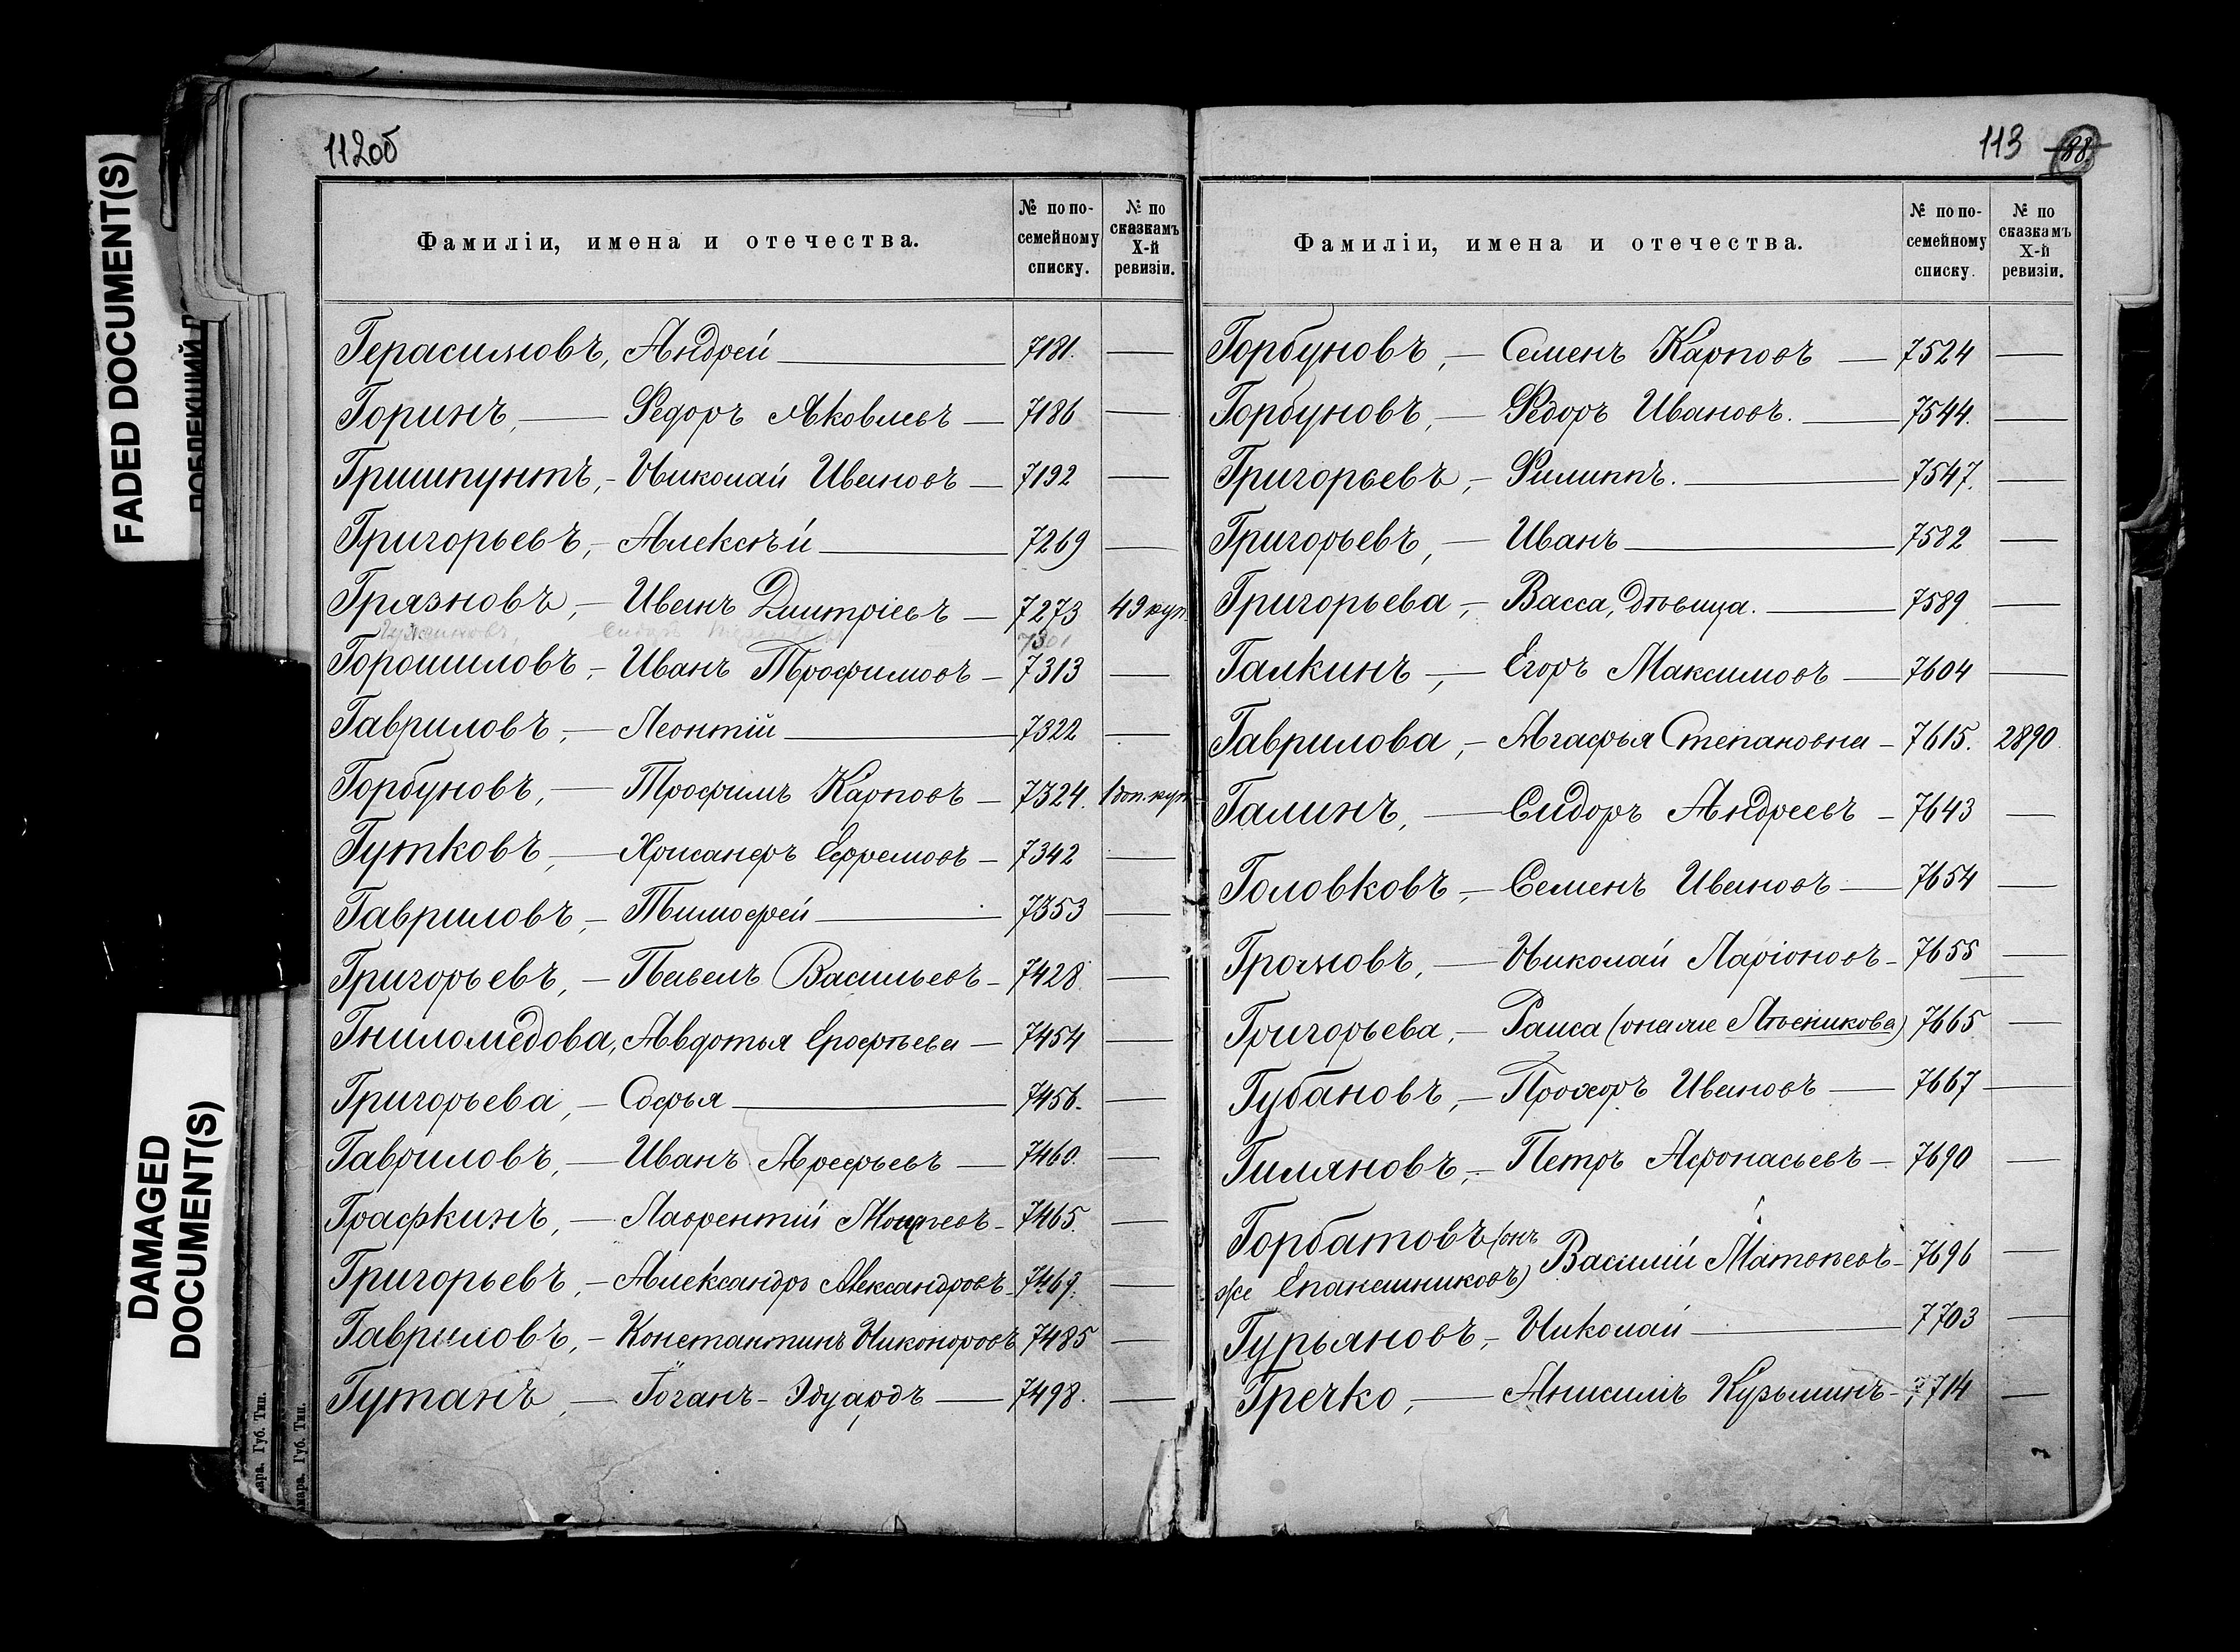 112об
Фамиліи, имена и отечества.
№ по по-
семейному
списку.
№ по
сказкамъ
X-й
ревизіи.
Герасимовъ, Андрей — 7181. —
Горинъ, — Федоръ Яковлевъ — 7186 —
Гришпунтъ, - Николай Ивановъ — 7192 —
Григорьевъ, - Алексѣй — 7269 —
Грязновъ, - Иванъ Дмитріевъ — 7273 49 куп.
7301
Горошиловъ, - Иванъ Трофимовъ - 7313 —
Гавриловъ, - Леонтій — 7322 —
Горбуновъ, — Трофимъ Карповъ - 7324. 1 доп. куп.
Гутковъ, — Хрисанфъ Ефремовъ - 7342 —
Гавриловъ, - Тимофей — 7353 —
Григорьевъ, - Павелъ Васильевъ - 7428. —
Гниломедова, Авдотья Ерофѣева — 7454 —
Григорьева, - Софья — 7456. —
Гавриловъ, — Иванъ Арефьевъ — 7460. —
Графкинъ, — Лаврентій - 7465. —
Григорьевъ, - Александръ Александровъ - 7469. —
Гавриловъ, - Константинъ Никоноровъ 7485 —
Гутанъ, — Іоганъ - Эдуардъ — 7498. —
113 88
Фамиліи, имена и отечества.
№ по по-
семейному
списку.
№ по
сказкамъ
X-й
ревизіи.
Горбуновъ, — Семенъ Карповъ — 7524 —
Горбуновъ, — Федоръ Ивановъ. — 7544. —
Григорьевъ, - Филиппъ. — 7547. —
Григорьевъ, — Иванъ — 7582 —
Григорьева, - Васса, дѣвица. — 7589 —
Галкинъ, — Егоръ Максимовъ — 7604 —
Гаврилова, - Агафья Степановна - 7615. 2890.
Галинъ, — Сидоръ Андреевъ - 7643 —
Головковъ, - Семенъ Ивановъ — 7654 —
Громовъ, — Николай Ларіоновъ - 7655 —
Григорьева, - Раиса (она же Лѣсникова) 7665 —
Губановъ, - Прохоръ Ивановъ — 7667 —
Гиляновъ, - Петръ Афонасьевъ - 7690 —
Горбатовъ (онъ
же Епанешниковъ) Василій Матвѣевъ - 7696 —
Гурьяновъ, - Николай — 7703 —
Гречко, — Анисимъ Кузьминъ - 7714 —
FADED DOCUMENT(S)
DAMAGED
DOCUMENT(S)